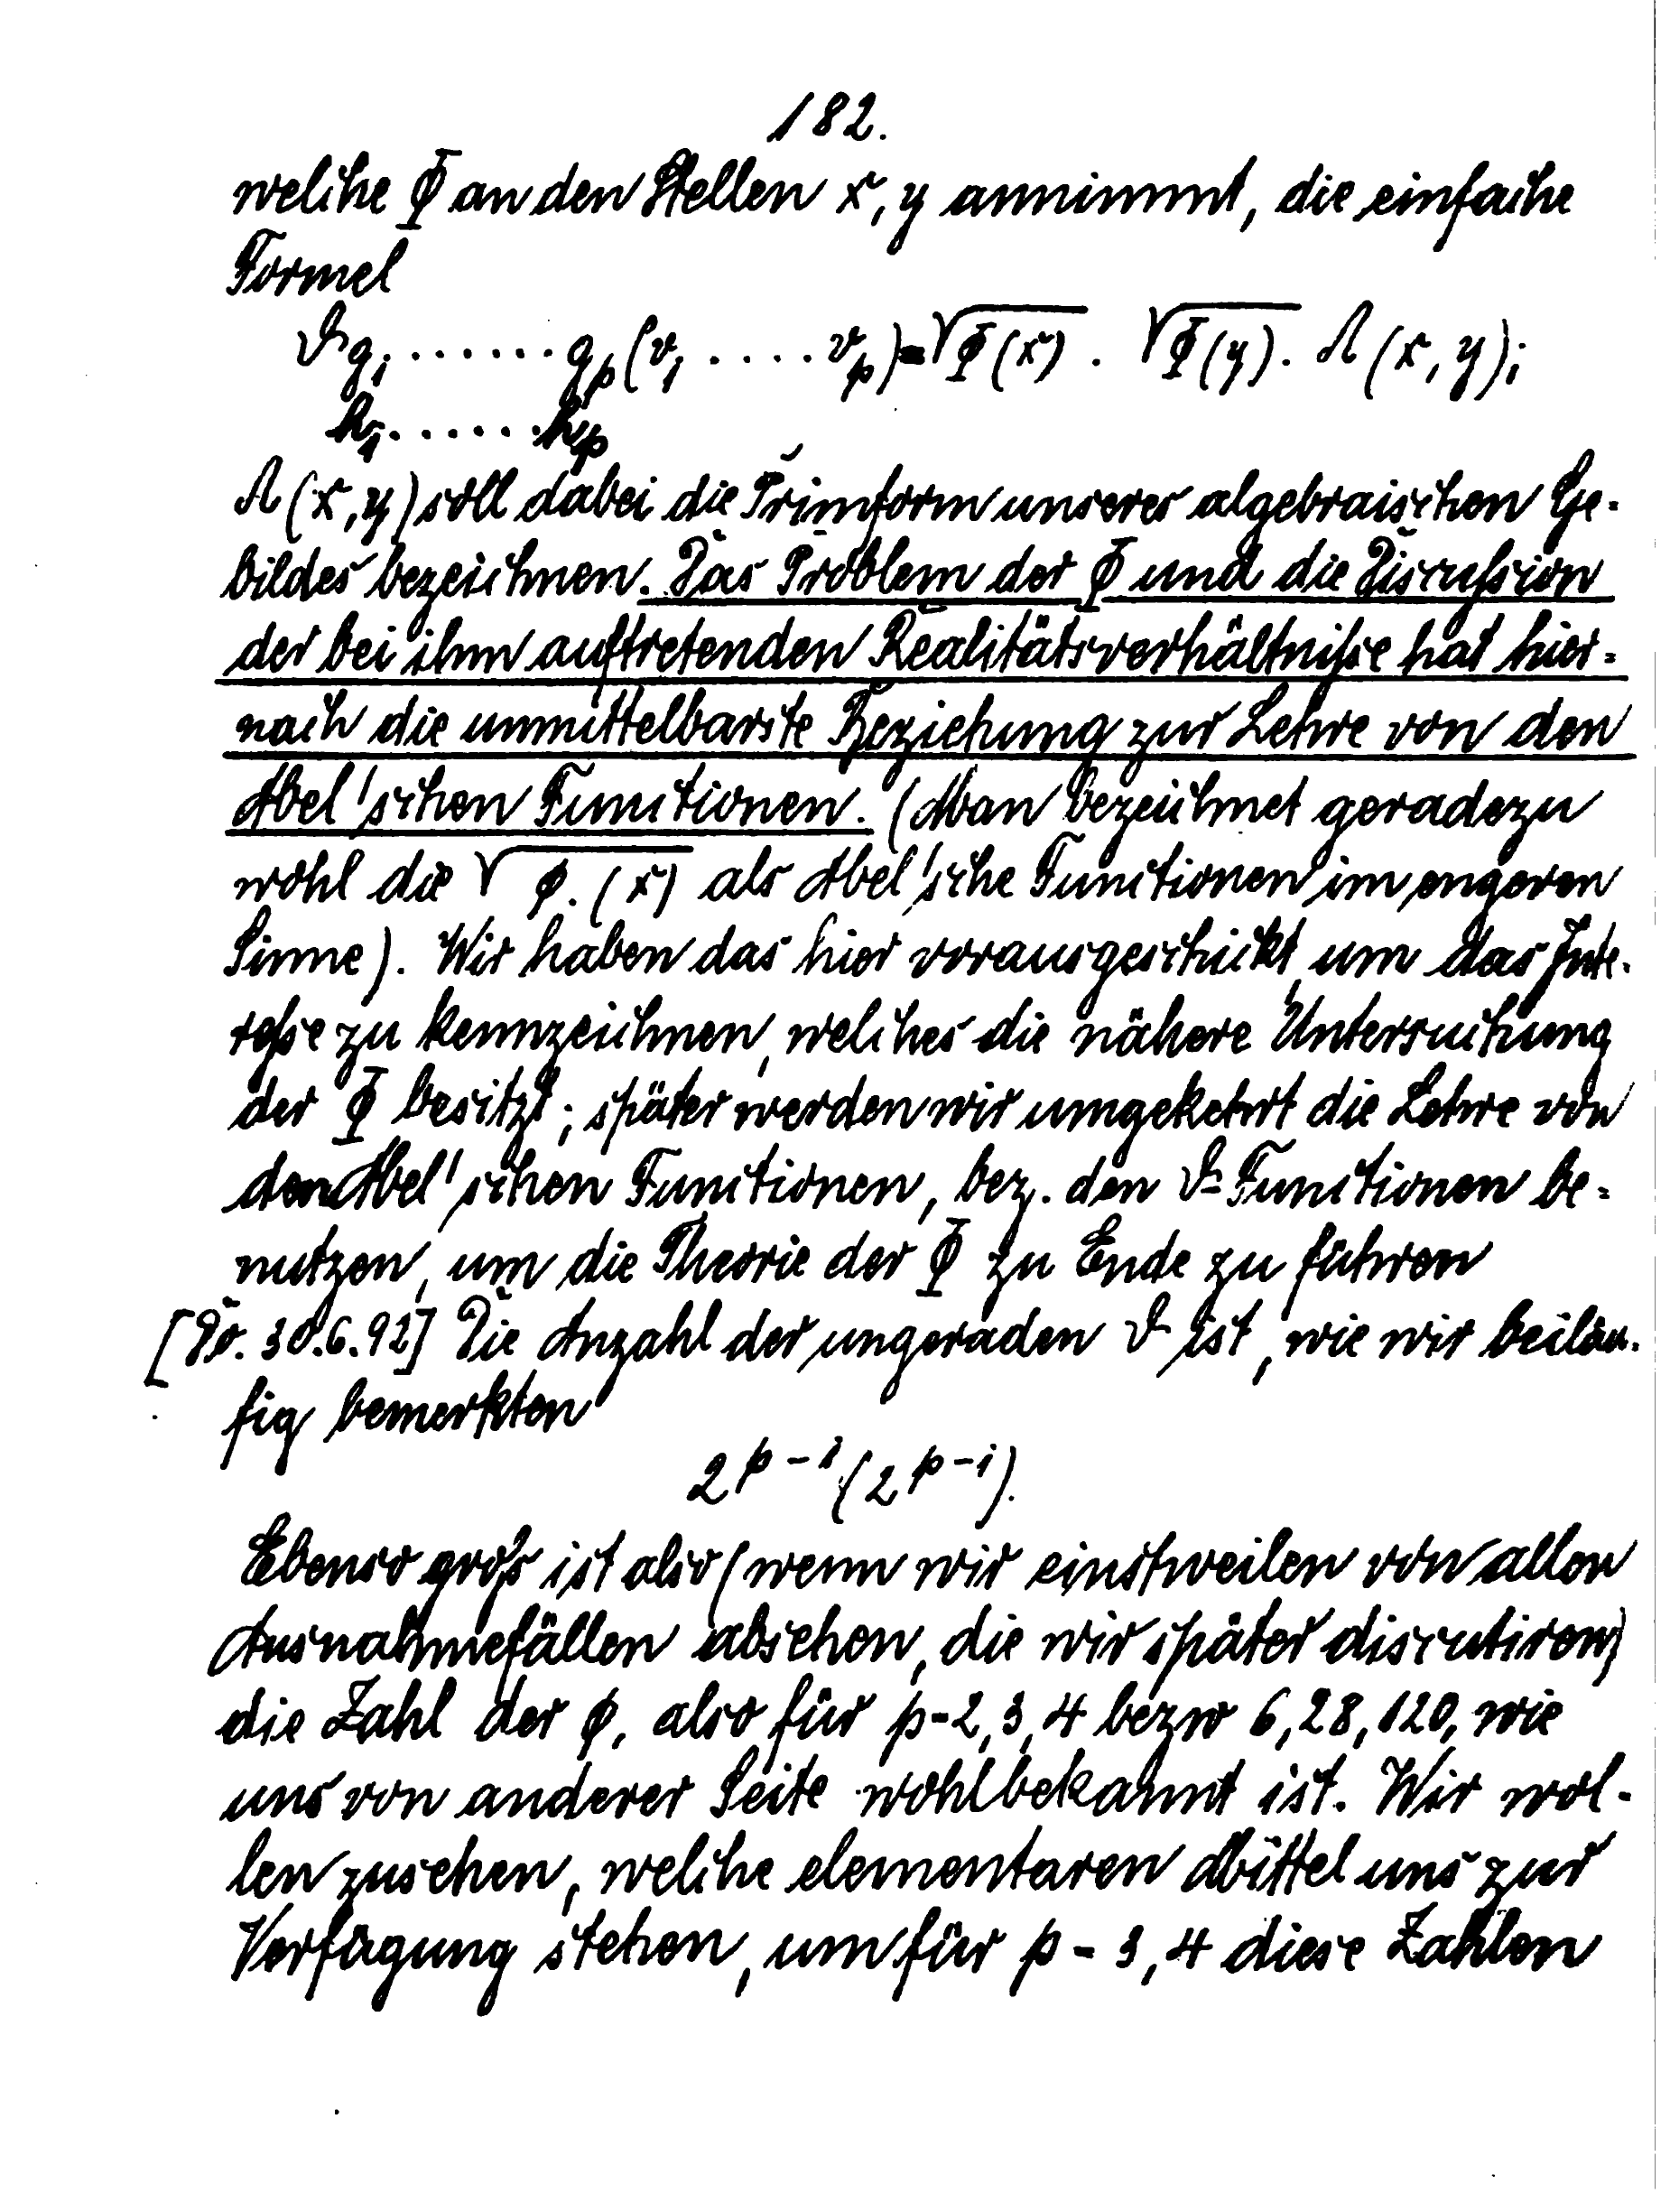 182.
welche Φ an den Stellen x, y annimmt, die einfache
Formel
ϑg₁.......gₚ(v₁....vₚ)=√Φ(x) . √Φ(y). Λ(x, y);
h₁.......hₚ
Λ(x, y) soll dabei die Primform unseres algebraischen Ge-
bildes bezeichnen. Das Problem der Φ und die Discußion
der bei ihm auftretenden Realitätsverhältniße hat hier-
nach die unmittelbarste Beziehung zur Lehre von den
Abel'schen Functionen. (Man bezeichnet geradezu
wohl die √φ.(x) als Abel'sche Functionen im engeren
Sinne). Wir haben das hier vorausgeschickt, um das Inte-
reße zu kennzeichnen, welches die nähere Untersuchung
der Φ besitzt; später werden wir umgekehrt die Lehre von
den Abel'schen Functionen, bez. den ϑ-Functionen be-
nutzen, um die Theorie der Φ zu Ende zu führen
[Do. 30.6.92] Die Anzahl der ungeraden ϑ ist, wie wir beiläu-
fig bemerkten
2^{p-1}(2^{p-1}).
Ebenso groß ist also (wenn wir einstweilen von allen
Ausnahmefällen absehen, die wir später discutiren)
die Zahl der φ, also für p=2,3,4 bezw 6,28,120, wie
uns von anderer Seite wohlbekannt ist. Wir wol-
len zusehen, welche elementaren Mittel uns zur
Verfügung stehen, um für p=3,4 diese Zahlen